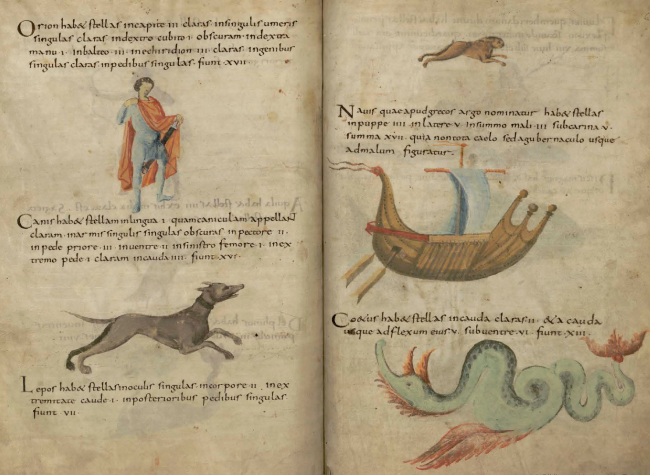 Orion hab& stellas incapite III claras insingulis umeris
singulas claras indextro cubito I obscuram indextra
manu I inbalteo III inenchiridion III claras ingenibus
singulas claras inpedibus singulas fiunt XVII
Canis hab& stellam inlingua I quam caniculam appellant
claram inarmis singulis singulas obscuras inpectore II
inpede priore III inuentre II insinistro femore I inex
tremo pede I claram incauda IIII fiunt XVI
Lepos hab& stellas inoculis singulas incorpore II inex
tremitate caude I inposterioribus pedibus singulas
fiunt VII
Nauis quae apud grecos argo nominatur hab& stellas
inpuppe IIII inlatere V insummo mali III subcarina V
summa XVII quia non tota caelo sed a gubernaculo usque
ad malum figuratur
Coetus hab& stellas incauda claras II & a cauda
usque adflexum eius V subuentre VI fiunt XIII